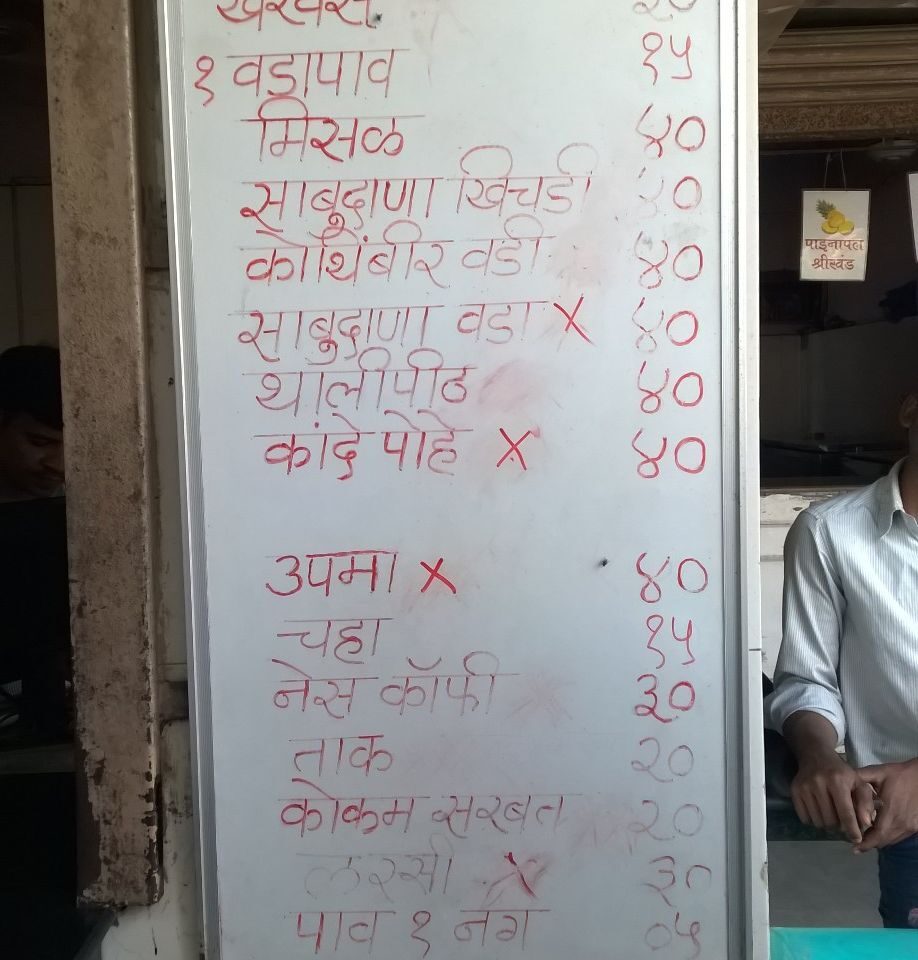 खरवस २०
१ वडापाव १५
मिसळ ४०
साबुदाणा खिचडी ४०
कोथिंबीर वडी ४०
साबुदाणा वडा X ४०
थालीपीठ ४०
कांदे पोहे X ४०
उपमा X ४०
चहा १५
नेस कॉफी ३०
ताक २०
कोकम सरबत २०
लस्सी X ३०
पाव १ नग ०५
पाइनापल
श्रीखंड